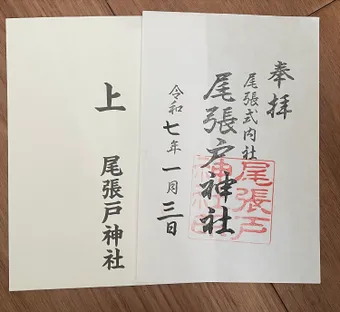 奉拝
尾張式内社
尾張戸神社
令和七年一月三日
尾張戸
神社
上
尾張戸神社